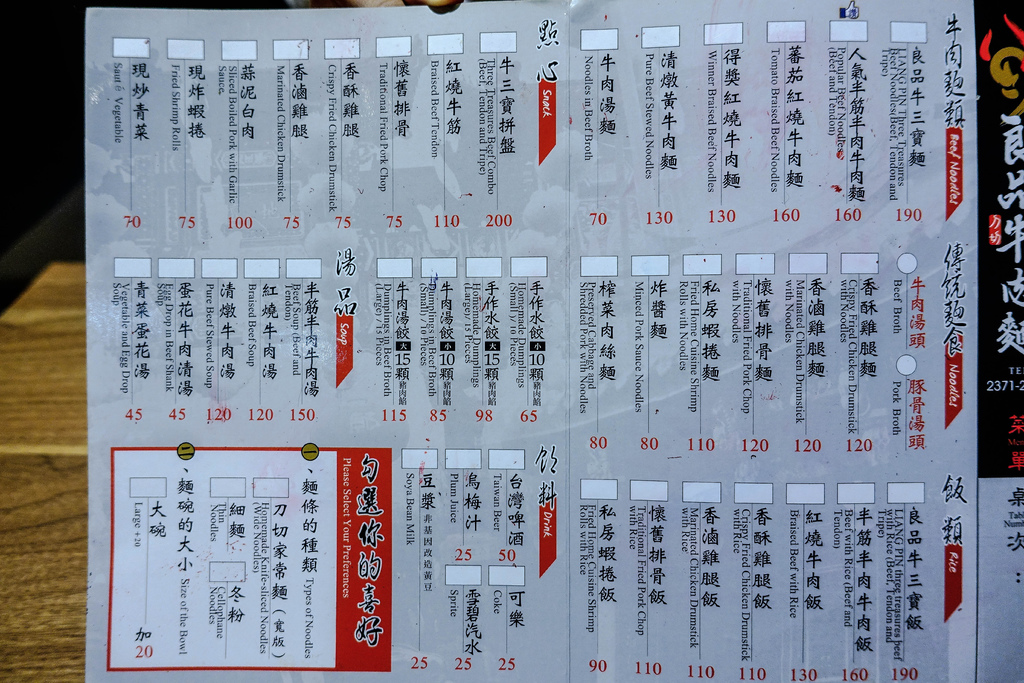 良品牛肉麵
万坊
TEL
2371-2
菜單
桌次：
牛肉麵類 Beef Noodles
良品牛三寶麵
LIANG PIN Three Treasures
Beef Noodles (Beef, Tendon and
Tripe)
190
人氣半筋半肉牛肉麵
Popular Beef Noodles
(Beef and Tendon)
160
蕃茄紅燒牛肉麵
Tomato Braised Beef Noodles
160
得獎紅燒牛肉麵
Winner Braised Beef Noodles
130
清燉黃牛肉麵
Pure Beef Stewed Noodles
130
牛肉湯麵
Noodles in Beef Broth
70
點心 Snack
牛三寶拼盤
Three Treasures Beef Combo
(Beef, Tendon and Tripe)
200
紅燒牛筋
Braised Beef Tendon
110
懷舊排骨
Traditional Fried Pork Chop
75
香酥雞腿
Crispy Fried Chicken Drumstick
75
香滷雞腿
Marinated Chicken Drumstick
75
蒜泥白肉
Sliced Boiled Pork with Garlic
Sauce
100
現炸蝦捲
Fried Shrimp Rolls
75
現炒青菜
Sauté Vegetable
70
傳統麵食 Noodles
牛肉湯頭
Beef Broth
豚骨湯頭
Pork Broth
香酥雞腿麵
Crispy Fried Chicken Drumstick
with Noodles
120
香滷雞腿麵
Marinated Chicken Drumstick
with Noodles
120
懷舊排骨麵
Traditional Fried Pork Chop
with Noodles
120
私房蝦捲麵
Fried Home Cuisine Shrimp
Rolls with Noodles
110
炸醬麵
Minced Pork Sauce Noodles
80
榨菜肉絲麵
Preserved Cabbage and
Shredded Pork with Noodles
80
手作水餃 小 10顆 豬肉餡
Homemade Dumplings
(Small) / 10 Pieces
65
手作水餃 大 15顆 豬肉餡
Homemade Dumplings
(Large) / 15 Pieces
98
牛肉湯餃 小 10顆 豬肉餡
Dumplings in Beef Broth
(Small) / 10 Pieces
85
牛肉湯餃 大 15顆 豬肉餡
Dumplings in Beef Broth
(Large) / 15 Pieces
115
湯品 Soup
半筋半肉牛肉湯
Beef Soup (Beef and
Tendon)
150
紅燒牛肉湯
Braised Beef Soup
120
清燉牛肉湯
Pure Beef Stewed Soup
120
蛋花牛肉清湯
Egg Drop in Beef Shank
Soup
45
青菜蛋花湯
Vegetable and Egg Drop
Soup
45
飯類 Rice
良品牛三寶飯
LIANG PIN three treasures beef
with Rice (Beef, Tendon and
Tripe)
190
半筋半肉牛肉飯
Beef with Rice (Beef and
Tendon)
160
紅燒牛肉飯
Braised Beef with Rice
130
香酥雞腿飯
Crispy Fried Chicken Drumstick
with Rice
110
香滷雞腿飯
Marinated Chicken Drumstick
with Rice
110
懷舊排骨飯
Traditional Fried Pork Chop
with Rice
110
私房蝦捲飯
Fried Home Cuisine Shrimp
Rolls with Rice
90
飲料 Drink
台灣啤酒
Taiwan Beer
50
可樂
Coke
25
烏梅汁
Plum Juice
25
雪碧汽水
Sprite
25
豆漿 非基因改造黃豆
Soya Bean Milk
25
勾選你的喜好
Please Select Your Preferences
一、麵條的種類 Types of Noodles
刀切家常麵（寬版）
Homemade Knife-sliced Noodles
(Wide Noodles)
細麵
Thin
Noodles
冬粉
Cellophane
Noodles
二、麵碗的大小 Size of the Bowl
大碗 加20
Large +20